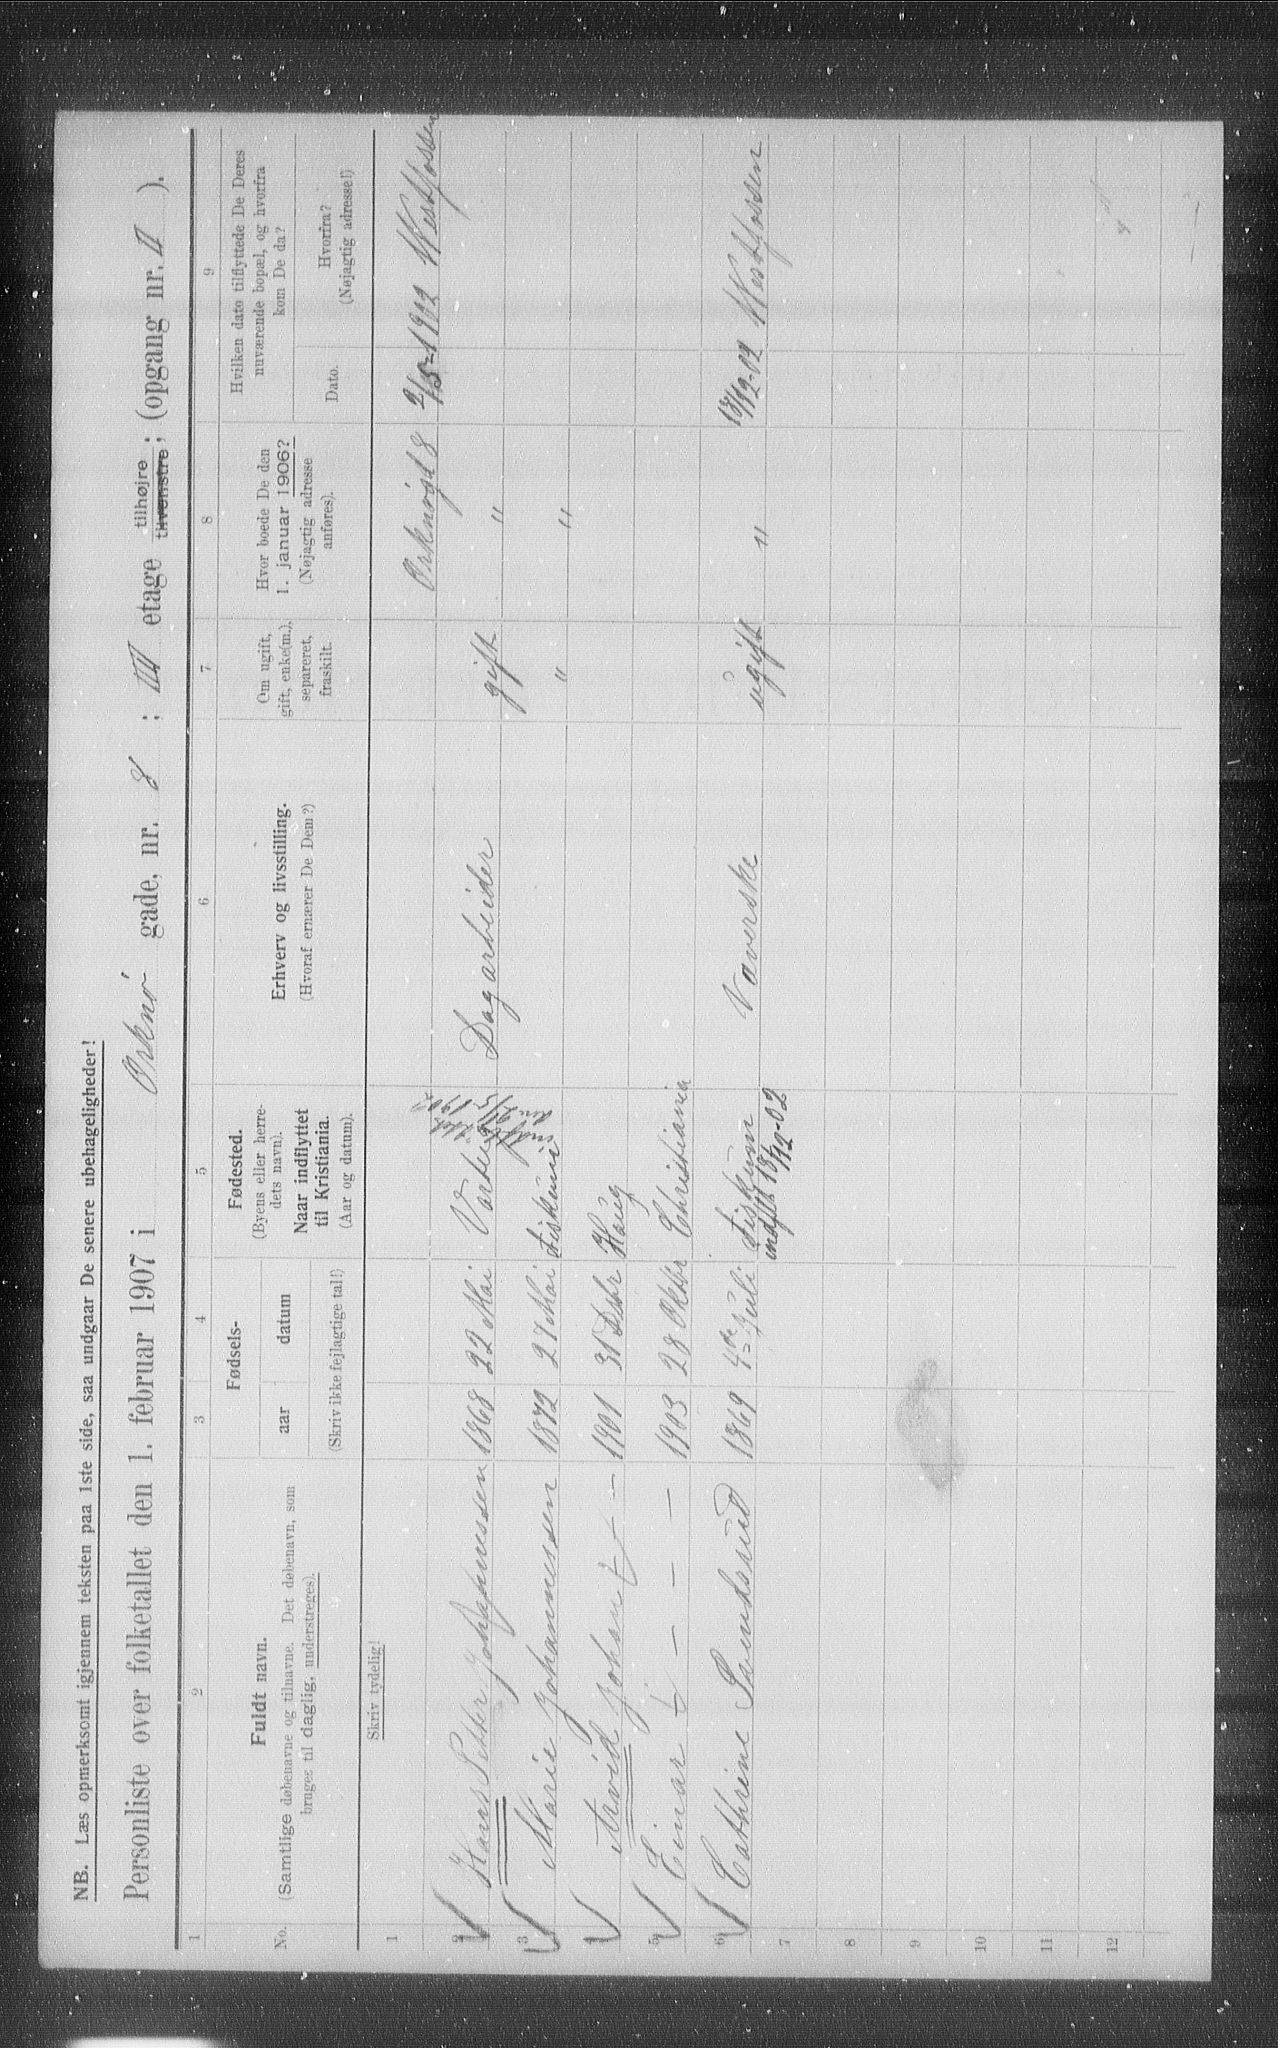 NB. Læs opmerksomt igjennem teksten paa 1ste side, saa undgaar De senere ubehageligheder!
Personliste over folketallet den 1. februar 1907 i Orknø gade, nr. 8 ; III etage tilhøjre tilvenstre ; (opgang nr. II ).
1 2 3 4 5 6 7 8 9
No.
Fuldt navn.
(Samtlige døbenavne og tilnavne. Det døbenavn, som
bruges til daglig, understreges).
Fødsels-
aar datum
(Skriv ikke fejlagtige tal!)
Fødested.
(Byens eller herre-
dets navn).
Naar indflyttet
til Kristiania.
(Aar og datum).
Erhverv og livsstilling.
(Hvoraf ernærer De Dem?)
Om ugift,
gift, enke(m.),
separeret,
fraskilt.
Hvor boede De den
1. januar 1906?
(Nøjagtig adresse
anføres).
Hvilken dato tilflyttede De Deres
nuværende bopæl, og hvorfra
kom De da?
Dato.
Hvorfra?
(Nøjagtig adresse!)
Skriv tydelig!
1 Orknøgd 8 2/5-1902 Westfossen
2 Hans Petter Johannessen 1868 22 Mai Dagarbeider gift "
3 Marie Johannessen 1872 27 Mai Fiskum " "
4 Arvid Johan - 1901 31 Dsbr Haug
5 Einar - - - 1903 28 Oktbr Christiania
6 Cathrine Sundsrud 1869 4de Juli Fiskum Væverske ugift " 18/12-02 Westfossen
indfl 18/12-02
7
8
9
10
11
12